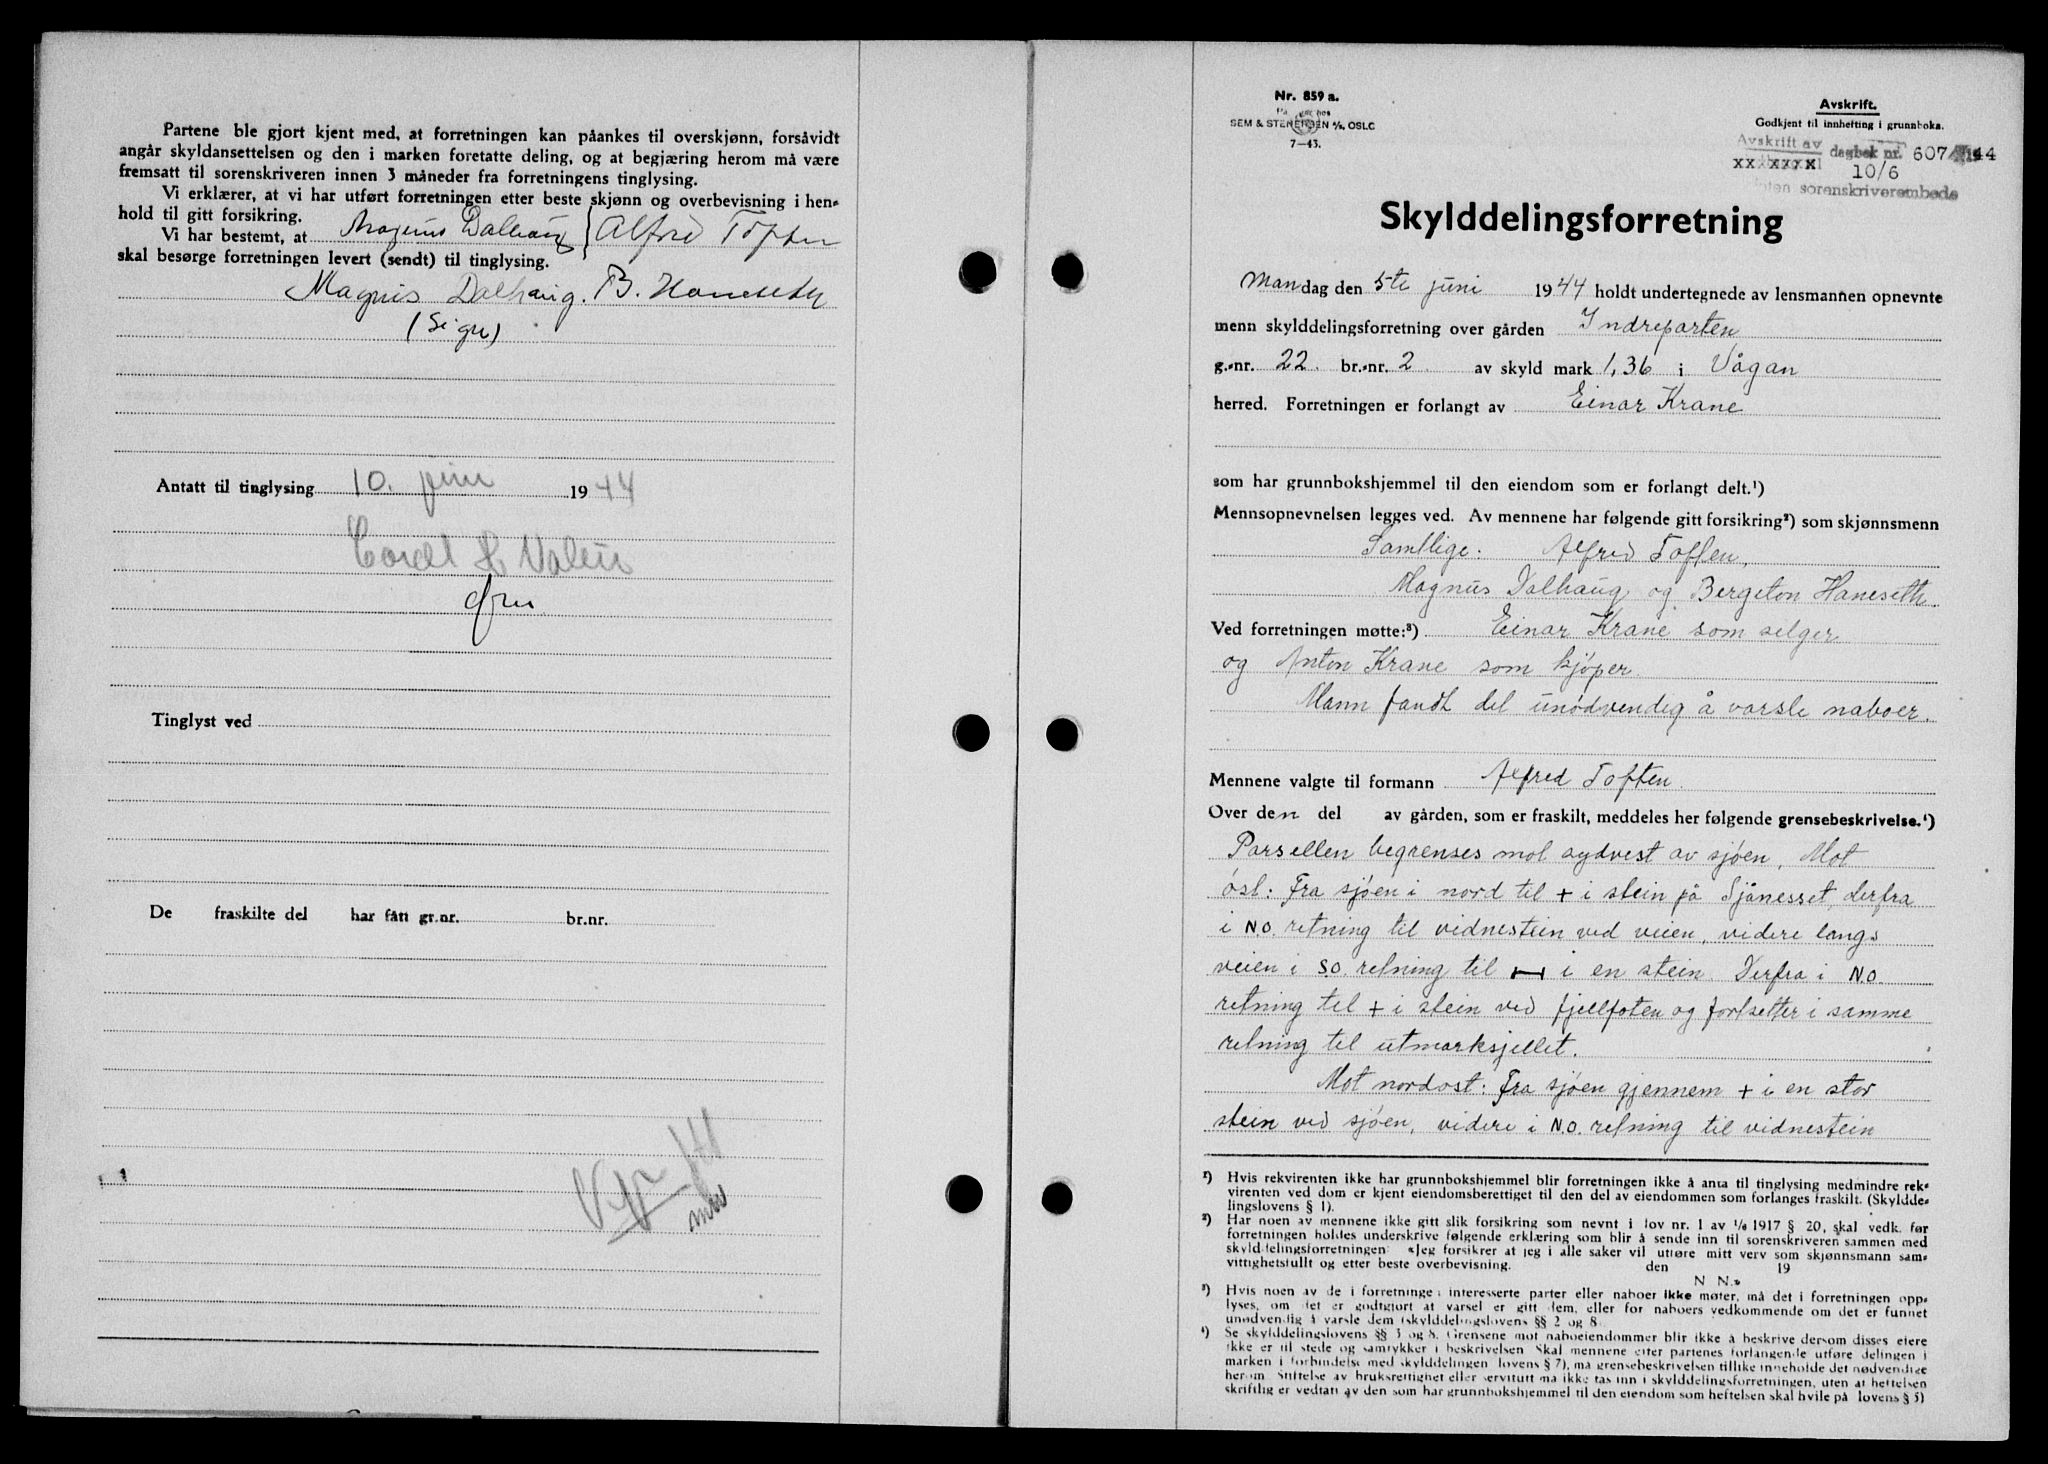 Partene ble gjort kjent med, at forretningen kan påankes til overskjønn, forsåvidt
angår skyldansettelsen og den i marken foretatte deling, og at begjæring herom må være
fremsatt til sorenskriveren innen 3 måneder fra forretningens tinglysing.
Vi erklærer, at vi har utført forretningen etter beste skjønn og overbevisning i hen-
hold til gitt forsikring.
Vi har bestemt, at Magnus Dalhaug } Alfred Toften
skal besørge forretningen levert (sendt) til tinglysing.
Magnus Dalhaug. B. Haneseth
(Sign)
Antatt til tinglysing 10. juni 1944
Tinglyst ved
De fraskilte del har fått gr.nr. br.nr.
Nr. 859 a.
SEM & STENERSEN A/S, OSLO
7—43.
Avskrift.
Godkjent til innhefting i grunnboka.
Avskrift av dagbok nr. 607 1944
xx xxxx 10/6
sorenskriverembede
Skylddelingsforretning
Mandag den 5te juni 1944 holdt undertegnede av lensmannen opnevnte
menn skylddelingsforretning over gården Indreparten
g.-nr. 22. br.-nr. 2. av skyld mark 1,36 i Vågan
herred. Forretningen er forlangt av Einar Krane
som har grunnbokshjemmel til den eiendom som er forlangt delt.¹)
Mennsopnevnelsen legges ved. Av mennene har følgende gitt forsikring²) som skjønnsmenn
Samtlige. Alfred Toften,
Magnus Dalhaug og Bergiton Haneseth.
Ved forretningen møtte:³) Einar Krane som selger
og Anton Krane som kjöper.
Mann fandt det unödvendig å varsle naboer.
Mennene valgte til formann Alfred Toften.
Over den del av gården, som er fraskilt, meddeles her følgende grensebeskrivelse.⁴)
Parsellen begrenses mot sydvest av sjöen. Mot
öst: Fra sjöen i nord til + i stein på Sjånesset, derfra
i N.O. retning til vidnestein ved veien, videre langs
veien i S.O. retning til i en stein. Derfra i N.O.
retning til + i stein ved fjellfoten og fortsetter i samme
retning til utmarksjellet.
Mot nordost: Fra sjöen gjennem + i en stor
stein ved sjöen, videre i N.O. retning til vidnestein
¹) Hvis rekvirenten ikke har grunnbokshjemmel blir forretningen ikke å anta til tinglysing medmindre rek-
virenten ved dom er kjent eiendomsberettiget til den del av eiendommen som forlanges fraskilt. (Skyldde-
lingslovens § 1).
²) Har noen av mennene ikke gitt slik forsikring som nevnt i lov nr. 1 av 1/6 1917 § 20, skal vedk. før
forretningen holdes underskrive følgende erklæring som blir å sende inn til sorenskriveren sammen med
skylddelingsforretningen: «Jeg forsikrer at jeg i alle saker vil utføre mitt verv som skjønnsmann sam-
vittighetsfullt og etter beste overbevisning. den 19
N. N.»
³) Hvis noen av de i forretningen interesserte parter eller naboer ikke møter, må det i forretningen opp-
lyses, om det er godtgjort at varsel er gitt dem, eller for naboers vedkommende om det er funnet
unødvendig å varsle dem (skylddelingslovens §§ 2 og 8.
⁴) Se skylddelingslovens §§ 3 og 8. Grensene mot naboeiendommer blir ikke å beskrive dersom disses eiere
ikke er til stede og samtykker i beskrivelsen. Skal mennene etter partenes forlangende utføre delingen i
marken i forbindelse med skylddelingen (lovens § 7), må grensebeskrivelsen tillike inneholde det nødvendige
herom. Stiftelse av bruksrettighet eller servitutt må ikke tas inn i skylddelingsforretningen, uten at heftelsen
skriftlig er vedtatt av den som har grunnbokshjemmel til den eiendom som heftelsen skal hvile på (lovens § 5)